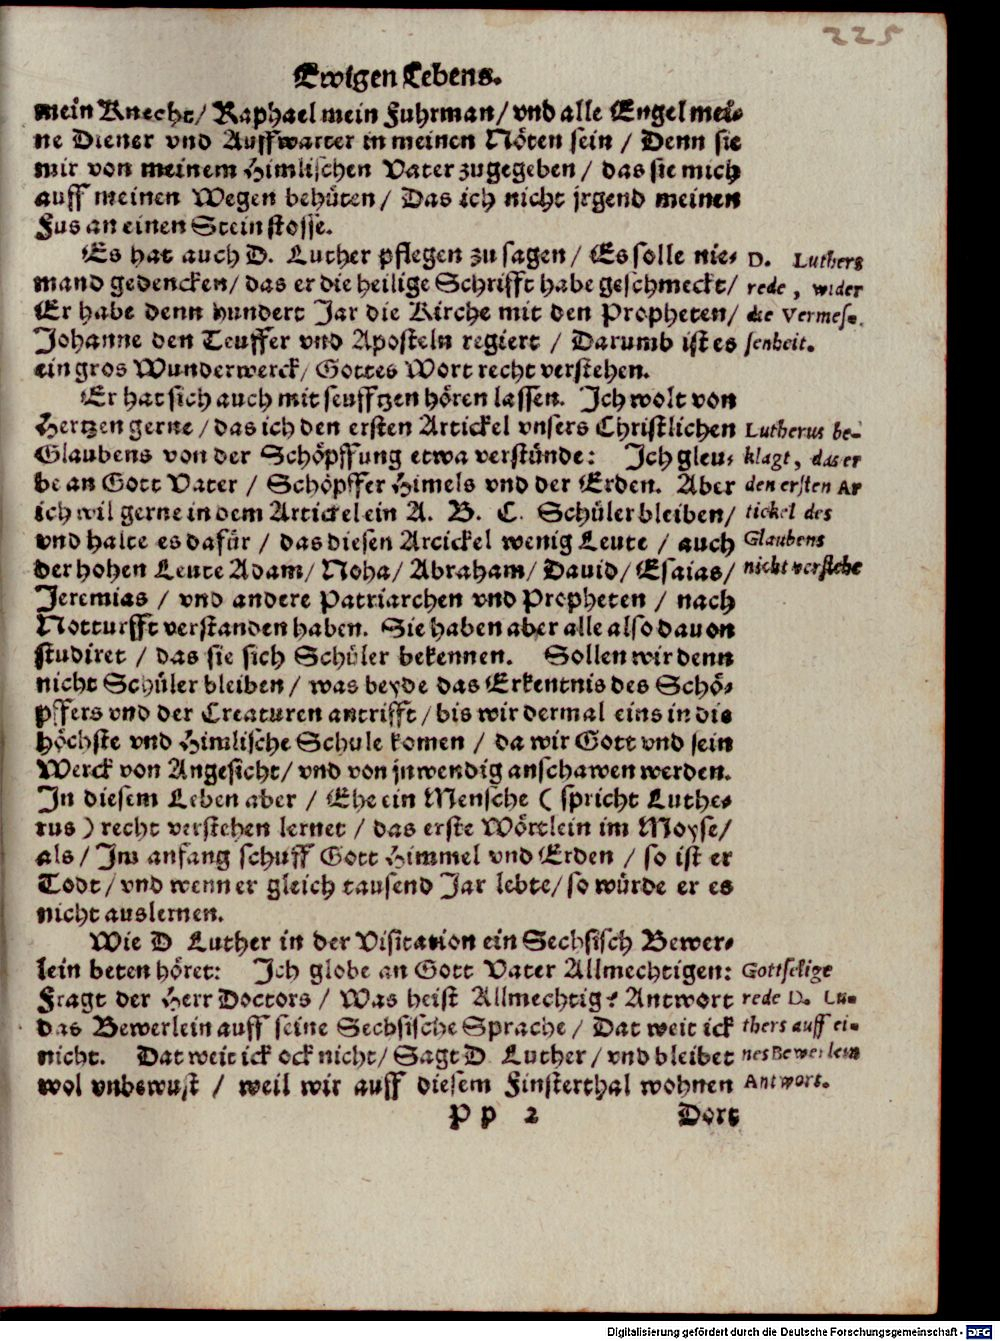 225
Ewigen Lebens.
mein Knecht/ Raphael mein Fuhrman/ vnd alle Engel mei-
ne Diener vnd Auffwarter in meinen Nöten sein / Denn sie
mir von meinem Himlischen Vater zugegeben / das sie mich
auff meinen Wegen behüten / Das ich nicht jrgend meinen
Fus an einen Stein stosse.
Es hat auch D. Luther pflegen zu sagen / Es solle nie-
mand gedencken/ das er die heilige Schrifft habe geschmeckt/
Er habe denn hundert Jar die Kirche mit den Propheten/
Johanne den Teuffer vnd Aposteln regiert / Darumb ist es
ein gros Wunderwerck/ Gottes Wort recht verstehen.
D. Luthers
rede, wider
die Vermes-
senheit.
Er hat sich auch mit seufftzen hören lassen. Ich wolt von
Hertzen gerne / das ich den ersten Artickel vnsers Christlichen
Glaubens von der Schöpffung etwa verstünde: Ich gleu-
be an Gott Vater / Schöpffer Himels vnd der Erden. Aber
ich wil gerne in dem Artickel ein A. B. C. Schüler bleiben/
vnd halte es dafür / das diesen Arcickel wenig Leute / auch
der hohen Leute Adam/ Noha/ Abraham/ Dauid/ Esaias/
Jeremias / vnd andere Patriarchen vnd Propheten / nach
Notturfft verstanden haben. Sie haben aber alle also dauon
studiret / das sie sich Schüler bekennen. Sollen wir denn
nicht Schüler bleiben / was beyde das Erkentnis des Schö-
pffers vnd der Creaturen antrifft / bis wir dermal eins in die
höchste vnd Himlische Schule komen / da wir Gott vnd sein
Werck von Angesicht/ vnd von jnwendig anschawen werden.
In diesem Leben aber / Ehe ein Mensche ( spricht Luthe-
rus ) recht verstehen lernet / das erste Wörtlein im Moyse/
als / Im anfang schuff Gott Himmel vnd Erden / so ist er
Todt/ vnd wenn er gleich tausend Jar lebte/ so würde er es
nicht auslernen.
Lutherus be-
klagt, das er
den ersten Ar
tickel des
Glaubens
nicht verstehe
Wie D Luther in der Visitation ein Sechsisch Bewer-
lein beten höret: Ich globe an Gott Vater Allmechtigen:
Fragt der Herr Doctors / Was heist Allmechtig? Antwort
das Bewerlein auff seine Sechsische Sprache / Dat weit ick
nicht. Dat weit ick ock nicht/ Sagt D Luther / vnd bleibet
wol vnbewust / weil wir auff diesem Finsterthal wohnen
Gottselige
rede D. Lu-
thers auff ei-
nes Bewerlein
Antwort.
P p 2 Dort
Digitalisierung gefördert durch die Deutsche Forschungsgemeinschaft - DFG